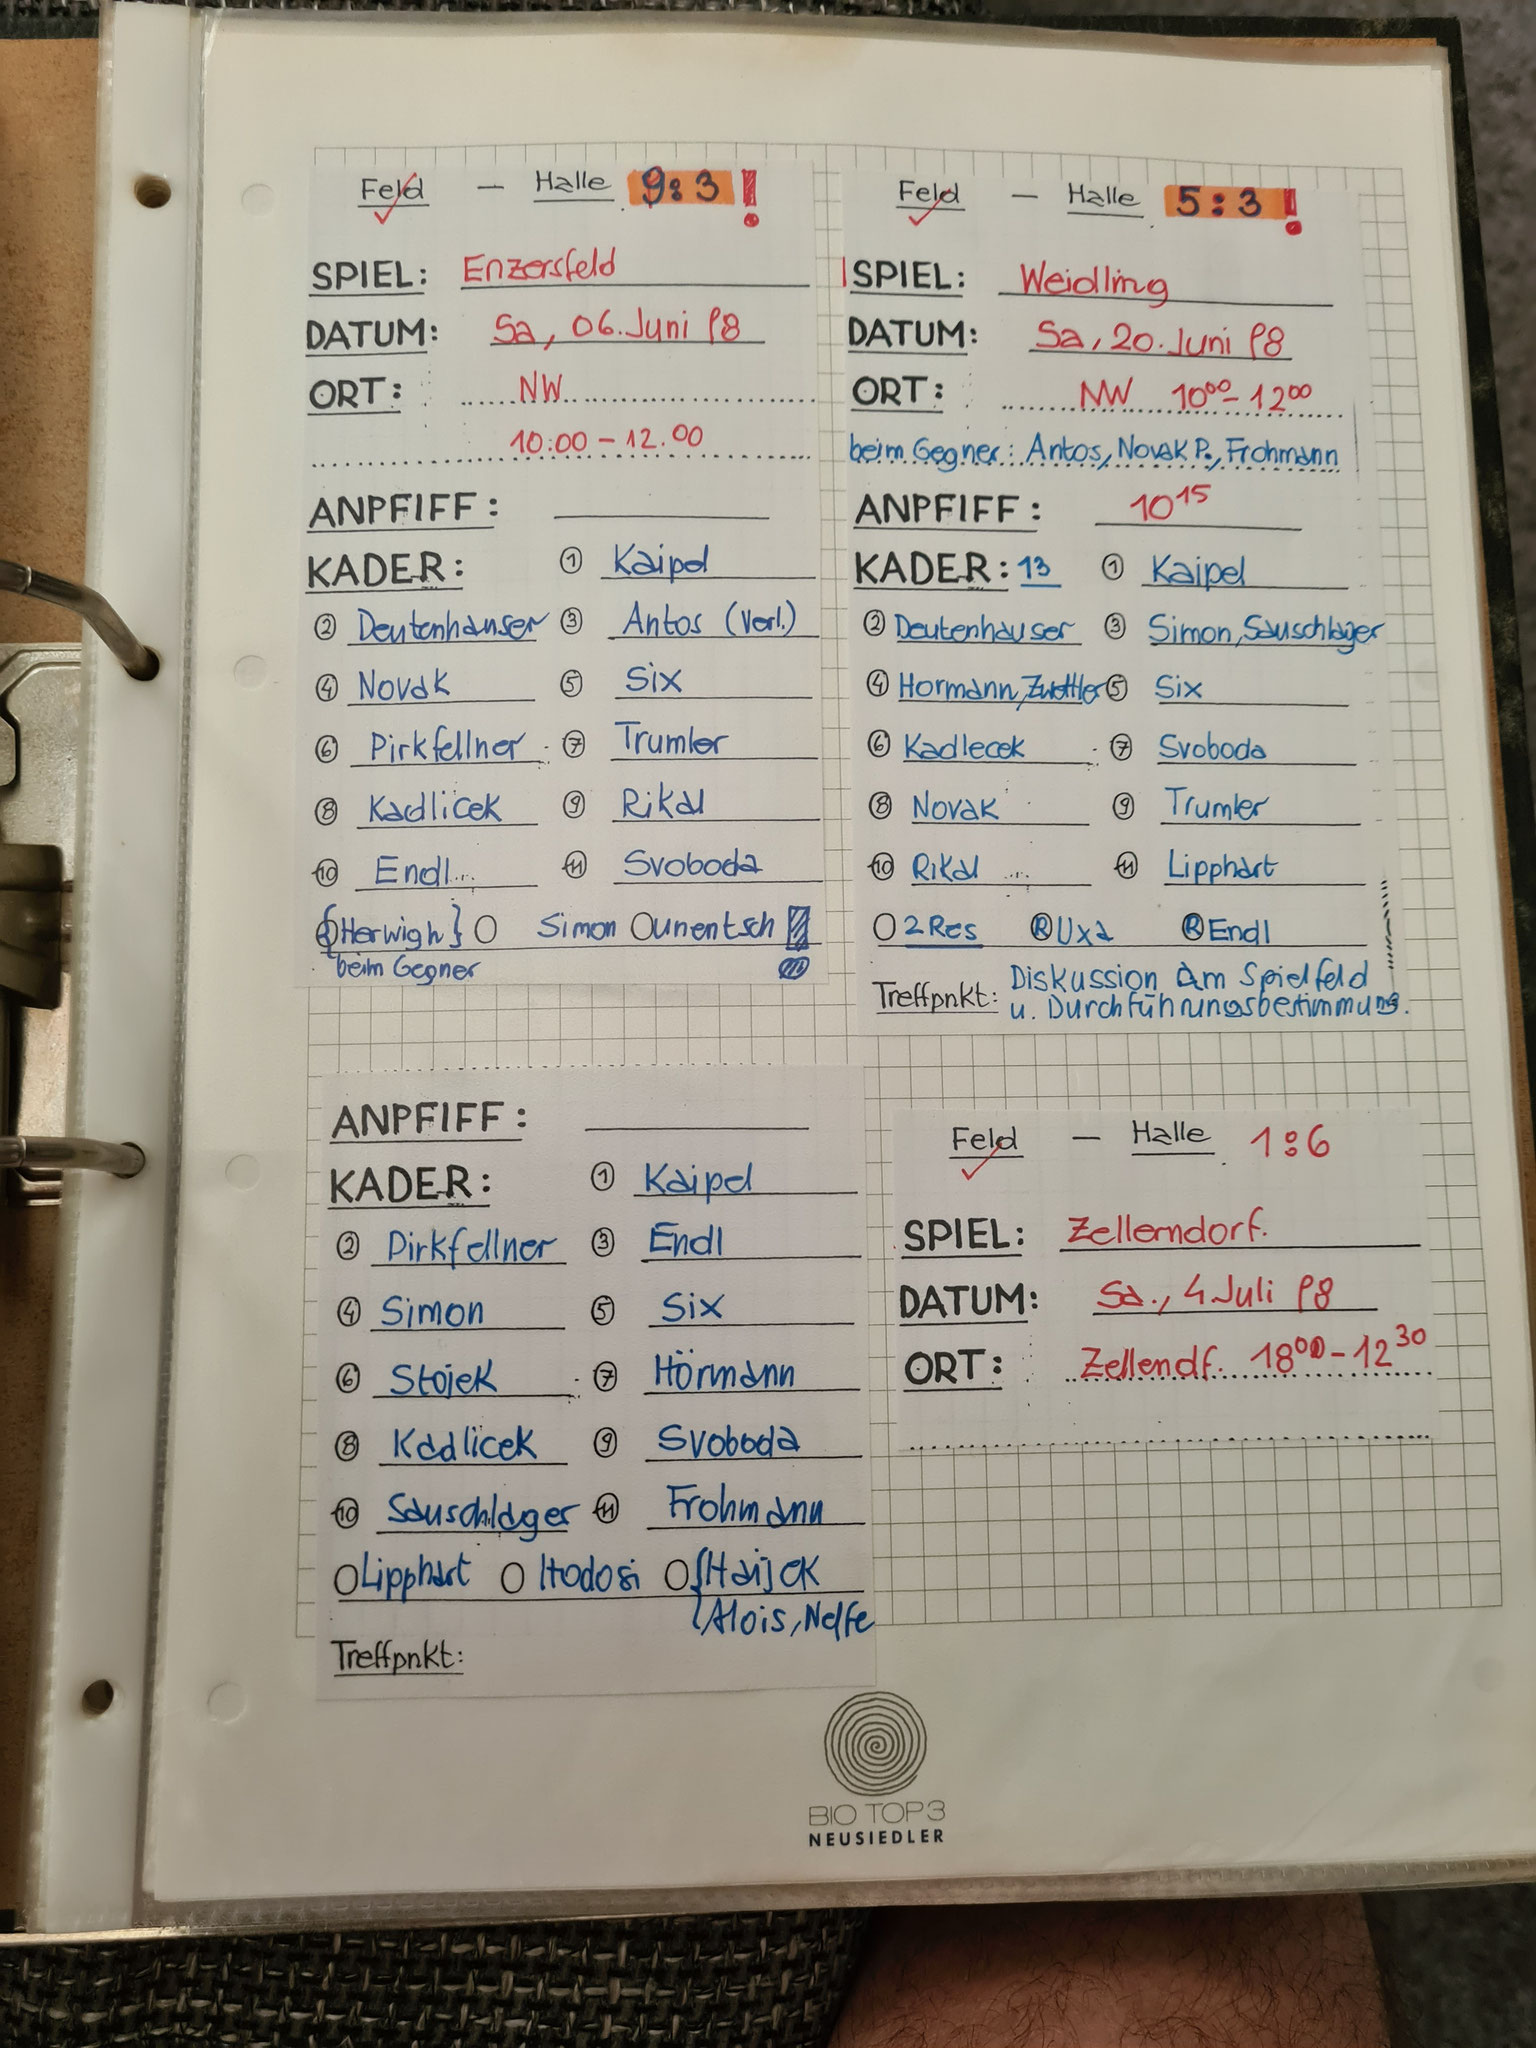 Feld - Halle 9:3!
SPIEL: Enzersfeld
DATUM: Sa, 06. Juni 98
ORT: NW
10:00 - 12.00
ANPFIFF:
KADER: ① Kaipel
② Deutenhauser ③ Antos (Verl.)
④ Novak ⑤ Six
⑥ Pirkfellner ⑦ Trumler
⑧ Kadlicek ⑨ Rikal
⑩ Endl ⑪ Svoboda
{Herwigh} Simon unentsch!
beim Gegner
Feld - Halle 5:3!
SPIEL: Weidling
DATUM: Sa, 20. Juni 98
ORT: NW 10⁰⁰ - 12⁰⁰
beim Gegner: Antos, Novak P., Frohmann
ANPFIFF: 10¹⁵
KADER: 13 ① Kaipel
② Deutenhauser ③ Simon, Sauschlager
④ Hormann, Zwettler ⑤ Six
⑥ Kadlecek ⑦ Svoboda
⑧ Novak ⑨ Trumler
⑩ Rikal ⑪ Lipphart
2 Res Ⓡ Uxa Ⓡ Endl
Treffpnkt: Diskussion am Spielfeld
u. Durchführungsbestimmung.
ANPFIFF:
KADER: ① Kaipel
② Pirkfellner ③ Endl
④ Simon ⑤ Six
⑥ Stojek ⑦ Hörmann
⑧ Kadlicek ⑨ Svoboda
⑩ Sauschlager ⑪ Frohmann
Lipphart Hodosi {Haijek
Alois, Nelfe
Treffpnkt:
Feld - Halle 1:6
SPIEL: Zellerndorf.
DATUM: Sa., 4 Juli 98
ORT: Zellendf. 18⁰⁰ - 12³⁰
BIO TOP 3
NEUSIEDLER